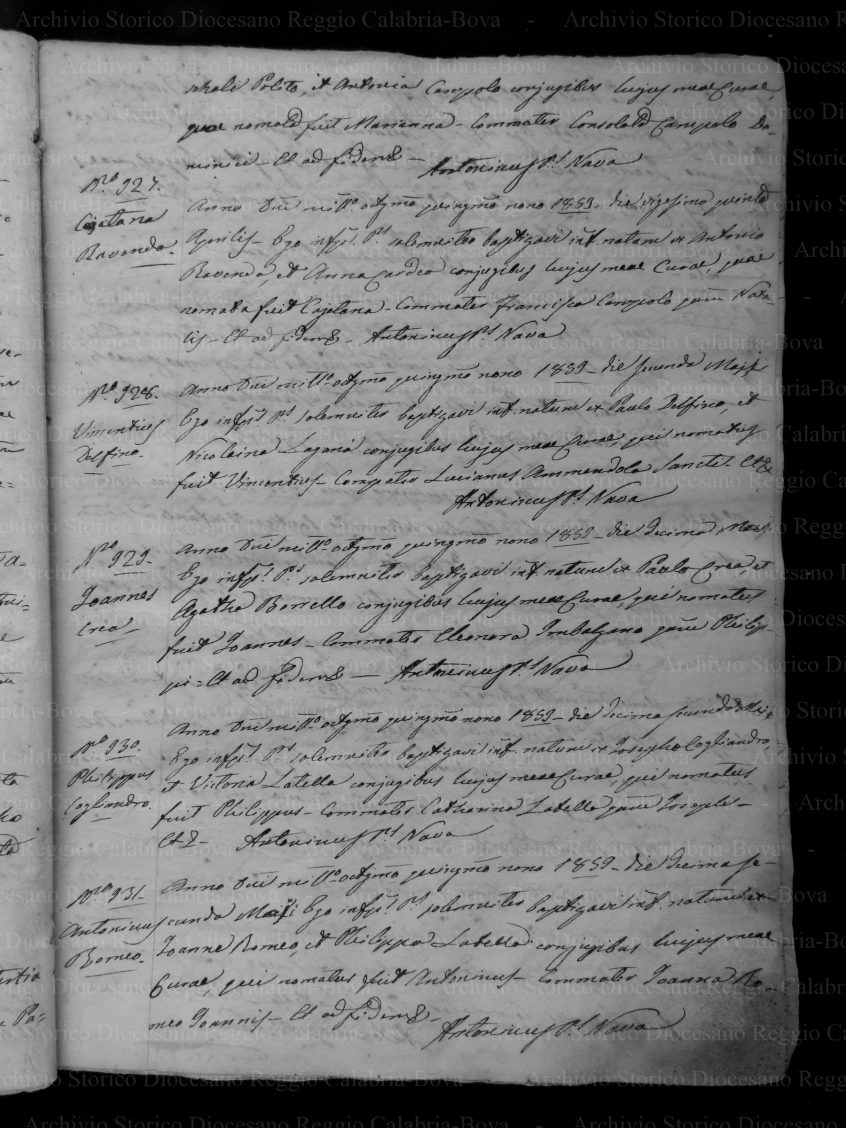 schali Polito, et Antonia Campolo conjugibus hujus meae Curae,
quae nomata fuit Marianna - Commater Consolata Campolo Do-
minici - Et ad fidem &
Antoninus Ps. Nava
No. 927.
Cajetana
Ravenda.
Anno Dni mill.o octgmo quingmo nono 1859. die vigesima quinta
Aprilis - Ego infps. Ps. solemniter baptizavi inf. natam ex Antonio
Ravenda, et Anna Cardea conjugibus hujus meae Curae, quae
nomata fuit Cajetana - Commater Francisca Campolo qum Nata-
lis - Et ad fidem & - Antoninus Ps. Nava
No. 928.
Vincentius
Delfino.
Anno Dni mill.o octgmo quingmo nono 1859 - die secunda Maji
Ego infps. Ps. solemniter baptizavi inf. natum ex Paulo Delfino, et
Nicolina Laganà conjugibus hujus meae Curae, qui nomatus
fuit Vincentius Compater Lucianus Ammendola Et &
Antoninus Ps. Nava
No. 929.
Joannes
Crea
Anno Dni mill.o octgmo quingmo nono 1859 - die decima Maji
Ego infps. Ps. solemniter baptizavi inf. natum ex Paulo Crea, et
Agatha Borrello conjugibus hujus meae Curae, qui nomatus
fuit Joannes - Commater Eleonora Imbalzano qum Philip-
pi = Et ad fidem & - Antoninus Ps. Nava
No. 930.
Philippus
Cogliandro.
Anno Dni mill.o octgmo quingmo nono 1859 - die decima secunda
Ego infps. Ps. solemniter baptizavi inf. natum ex Josepho Cogliandro,
et Victoria Latella conjugibus hujus meae Curae, qui nomatus
fuit Philippus - Commater Catharina Labella qum Joseph -
Et & - Antoninus Ps. Nava
No. 931.
Antoninus
Romeo.
Anno Dni mill.o octgmo quingmo nono 1859 - die decima se-
cunda Maji Ego infps. Ps. solemniter baptizavi inf. natum ex
Joanne Romeo, et Philippa Latella conjugibus hujus meae
Curae, qui nomatus fuit Antoninus - Commater Joanna Ro-
meo Joannis - Et ad fidem & -
Antoninus Ps. Nava
Archivio Storico Diocesano Reggio Calabria-Bova